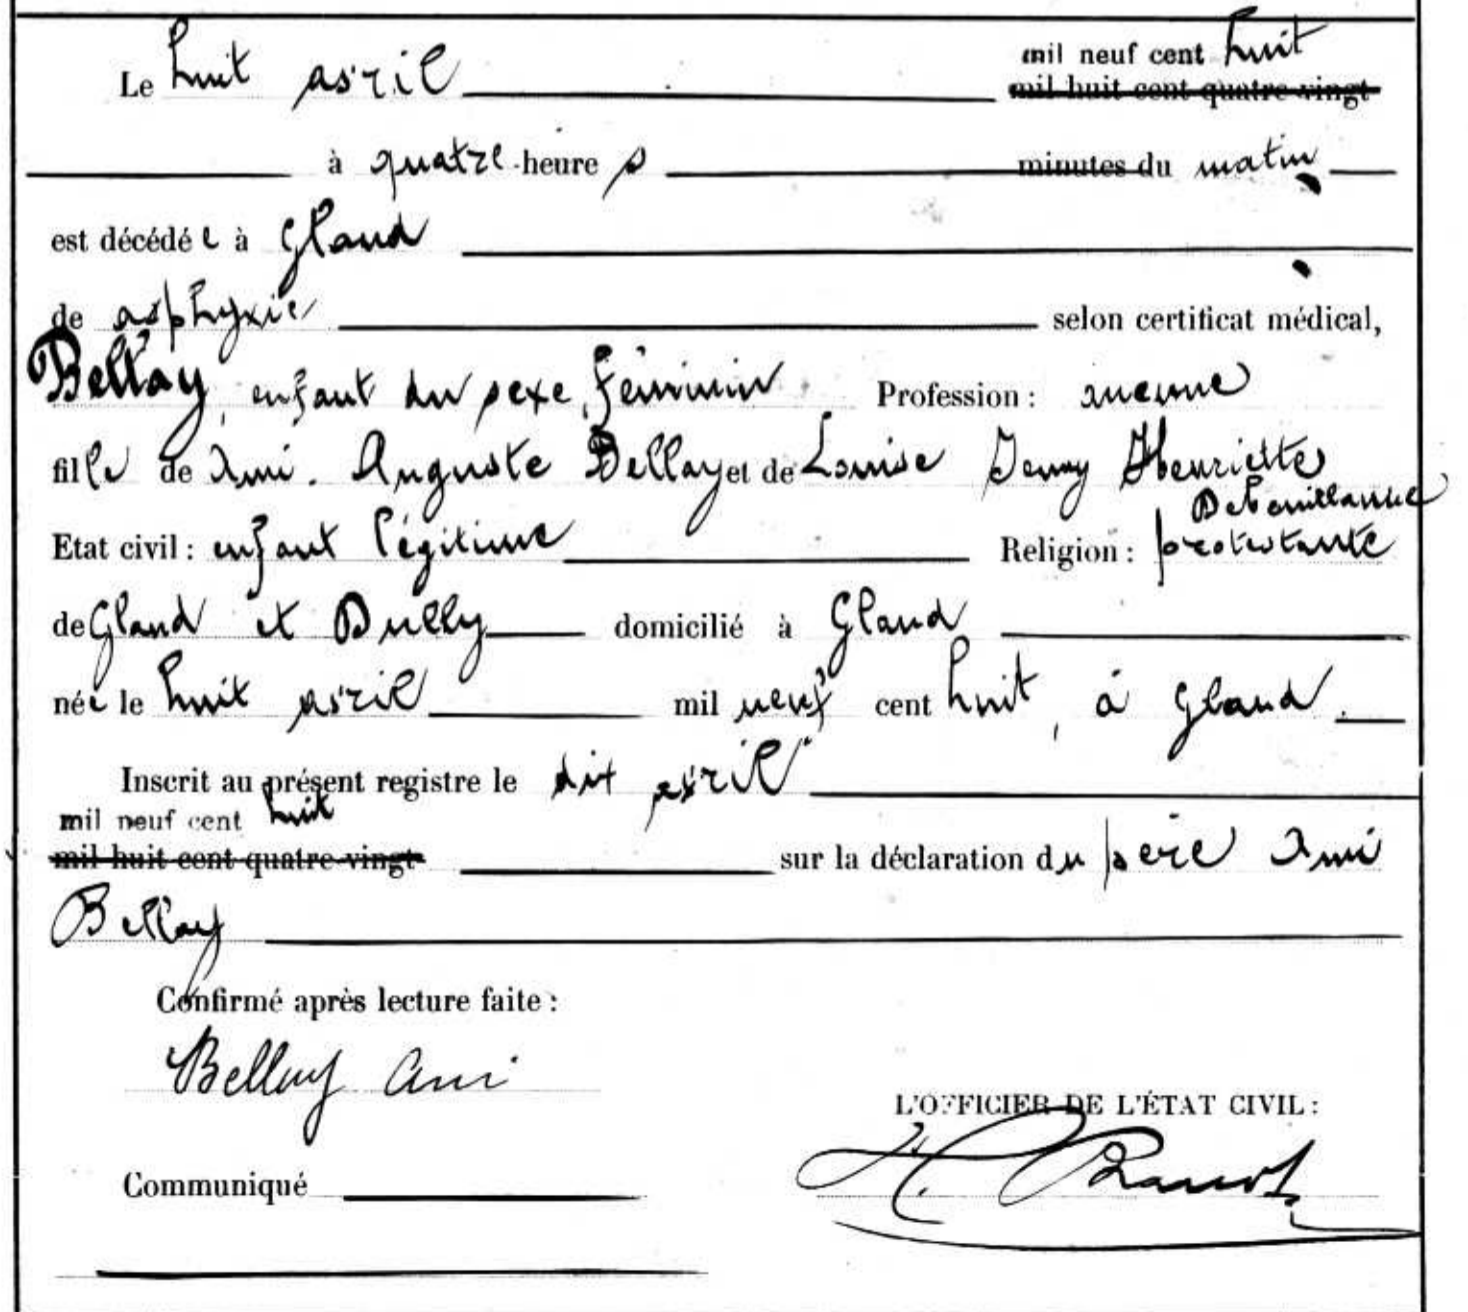 Le huit avril mil neuf cent huit
mil huit cent quatre-vingt
à quatre heures minutes du matin
est décédée à Gland
de asphyxie selon certificat médical,
Bellay, enfant du sexe féminin Profession : aucune
fille de Ami. Auguste Bellay et de Louise Jenny Henriette
Debouillanne
Etat civil : enfant légitime Religion : protestante
de Gland et Dully domicilié à Gland
née le huit avril mil neuf cent huit, à Gland.
Inscrit au présent registre le dix avril
mil neuf cent huit
mil huit cent quatre-vingt sur la déclaration du père Ami
Bellay
Confirmé après lecture faite :
Bellay Ami
L'OFFICIER DE L'ÉTAT CIVIL :
Communiqué
H.